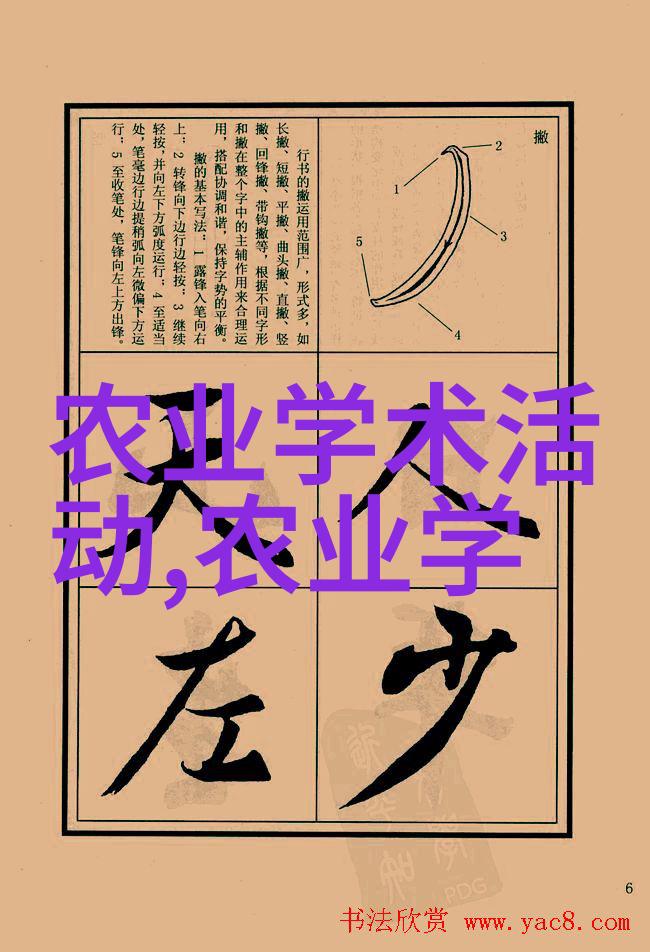 撇
1
2
3
4
5
行书的撇运用范围广，形式多，如
长撇、短撇、平撇、曲头撇、直撇、竖
撇、回锋撇、带钩撇等，根据不同字形
和撇在整个字中的主辅作用来合理运
用，搭配协调和谐，保持字势的平衡。
撇的基本写法：1 露锋入笔向右
上；2 转锋向下边行边轻按；3 继续
轻按，并向左下方弧度运行；4 至适当
处，笔毫边行边提稍弧向左微偏下方运
行；5 至收笔处，笔锋向左上方出锋。
人
天
农业学术活
动,农业学
少
左
PDG
6
书法欣赏 www.yac8.com